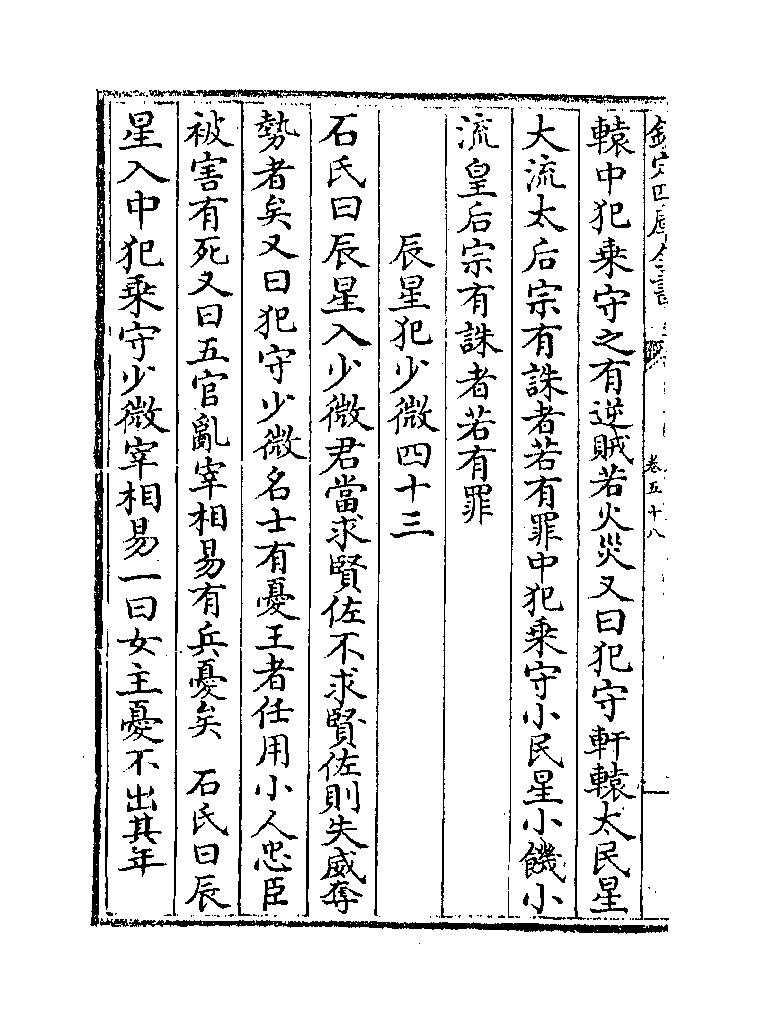 欽定四庫全書
卷五十八
轅中犯乗守之有逆賊若火災又曰犯守軒轅太民星
大流太后宗有誅者若有罪中犯乗守小民星小饑小
流皇后宗有誅者若有罪
辰星犯少微四十三
石氏曰辰星入少微君當求賢佐不求賢佐則失威奪
勢者矣又曰犯守少微名士有憂王者任用小人忠臣
被害有死又曰五官亂宰相易有兵憂矣 石氏曰辰
星入中犯乗守少微宰相易一曰女主憂不出其年